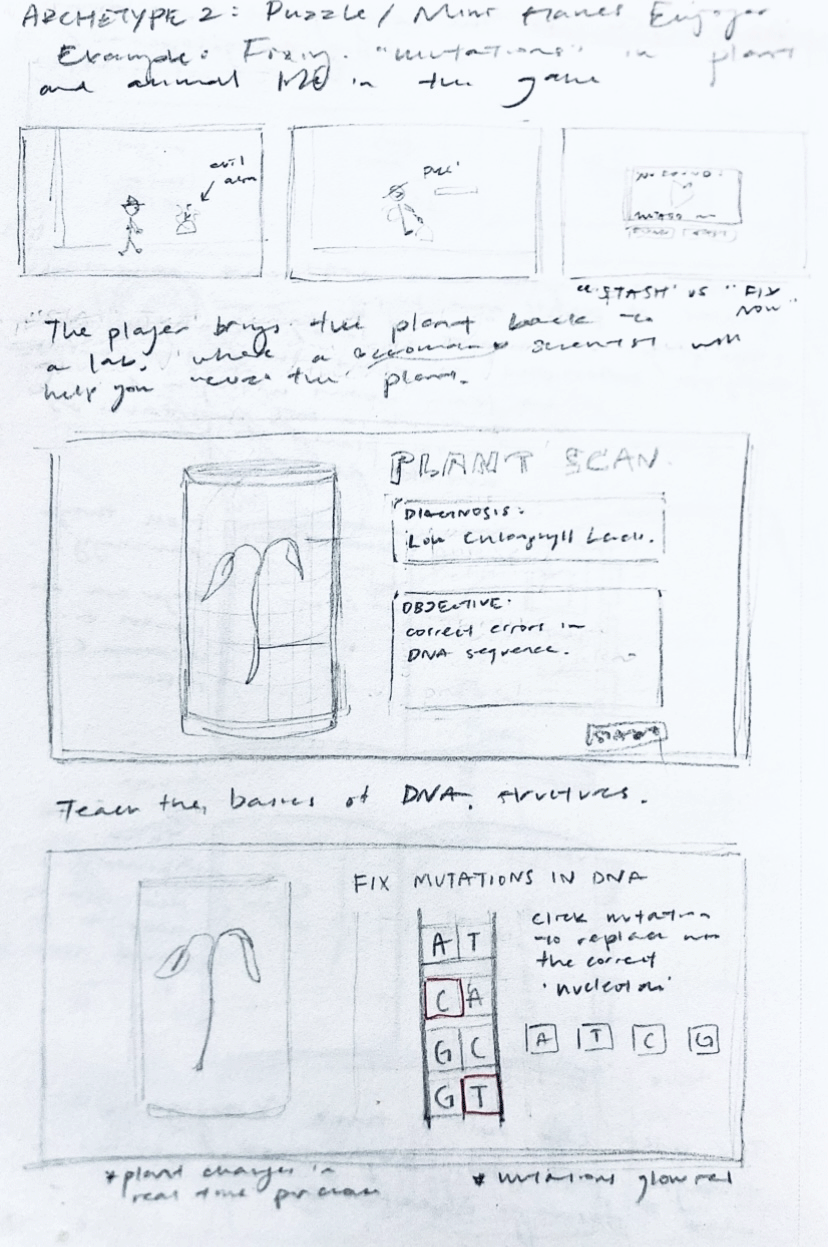 ARCHETYPE 2: Puzzle / Mini Games Enjoyer
Example: Fixing "mutations" in plant
and animal in the game
evil
"pull"
"STASH" vs "FIX
NOW"
"The player brings the plant back to
a lab, where a scientist will
help you the plant.
PLANT SCAN
DIAGNOSIS:
Low Chlorophyll Levels.
OBJECTIVE:
correct errors in
DNA sequence.
START
Teach the basics of DNA structures.
FIX MUTATIONS IN DNA
A T
C A
G C
G T
click mutation
to replace with
the correct
A T C G
*plant changes in
real time
* mutations glow red